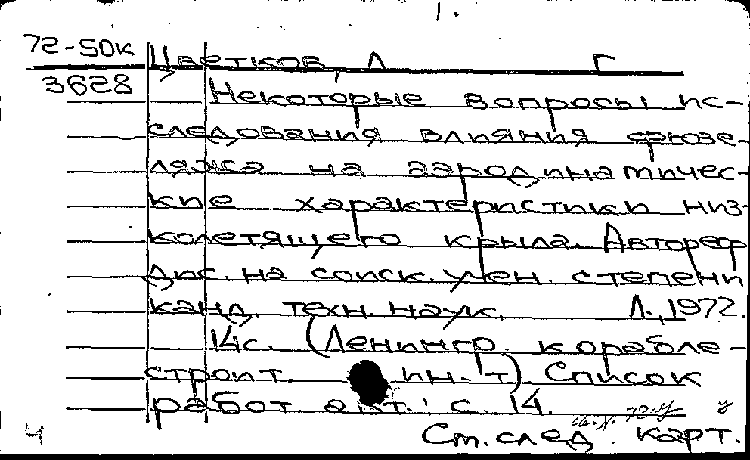 1.
72-50к Цветков, Л Г
3628 Некоторые вопросы ис-
следования влияния фюзе-
ляжа на аэродинамичес-
кие характеристики низ-
колетящего крыла. Автореф
дис. на соиск. учен. степени
канд. техн. наук. Л., 1972.
14с. (Ленингр. корабле-
строит. ин-т) Список
работ авт.: с. 14.
ч См. след. карт.